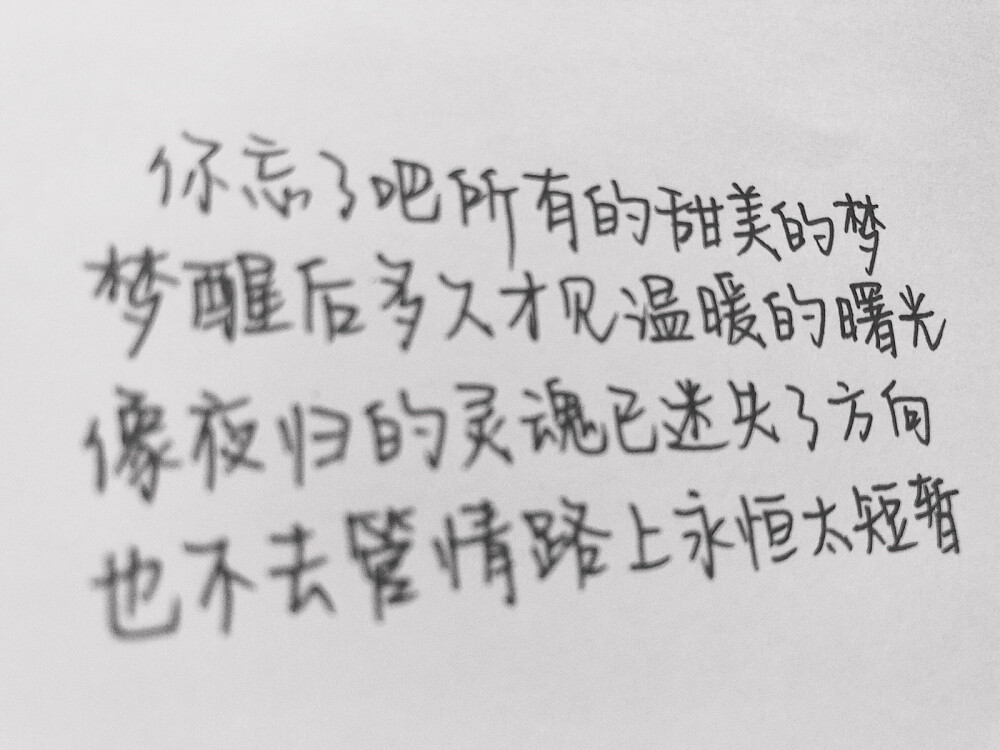 你忘了吧所有的甜美的梦
梦醒后多久才见温暖的曙光
像夜归的灵魂已迷失了方向
也不去管情路上永恒太短暂